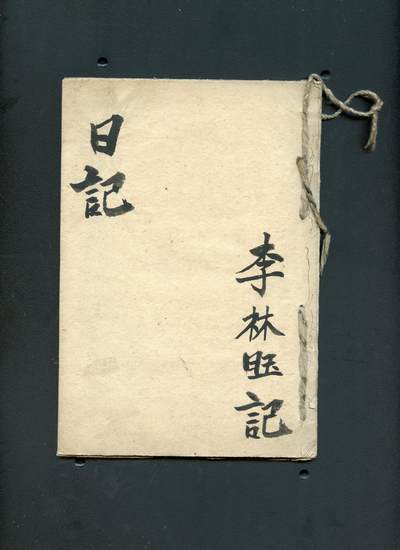 日記
李林記